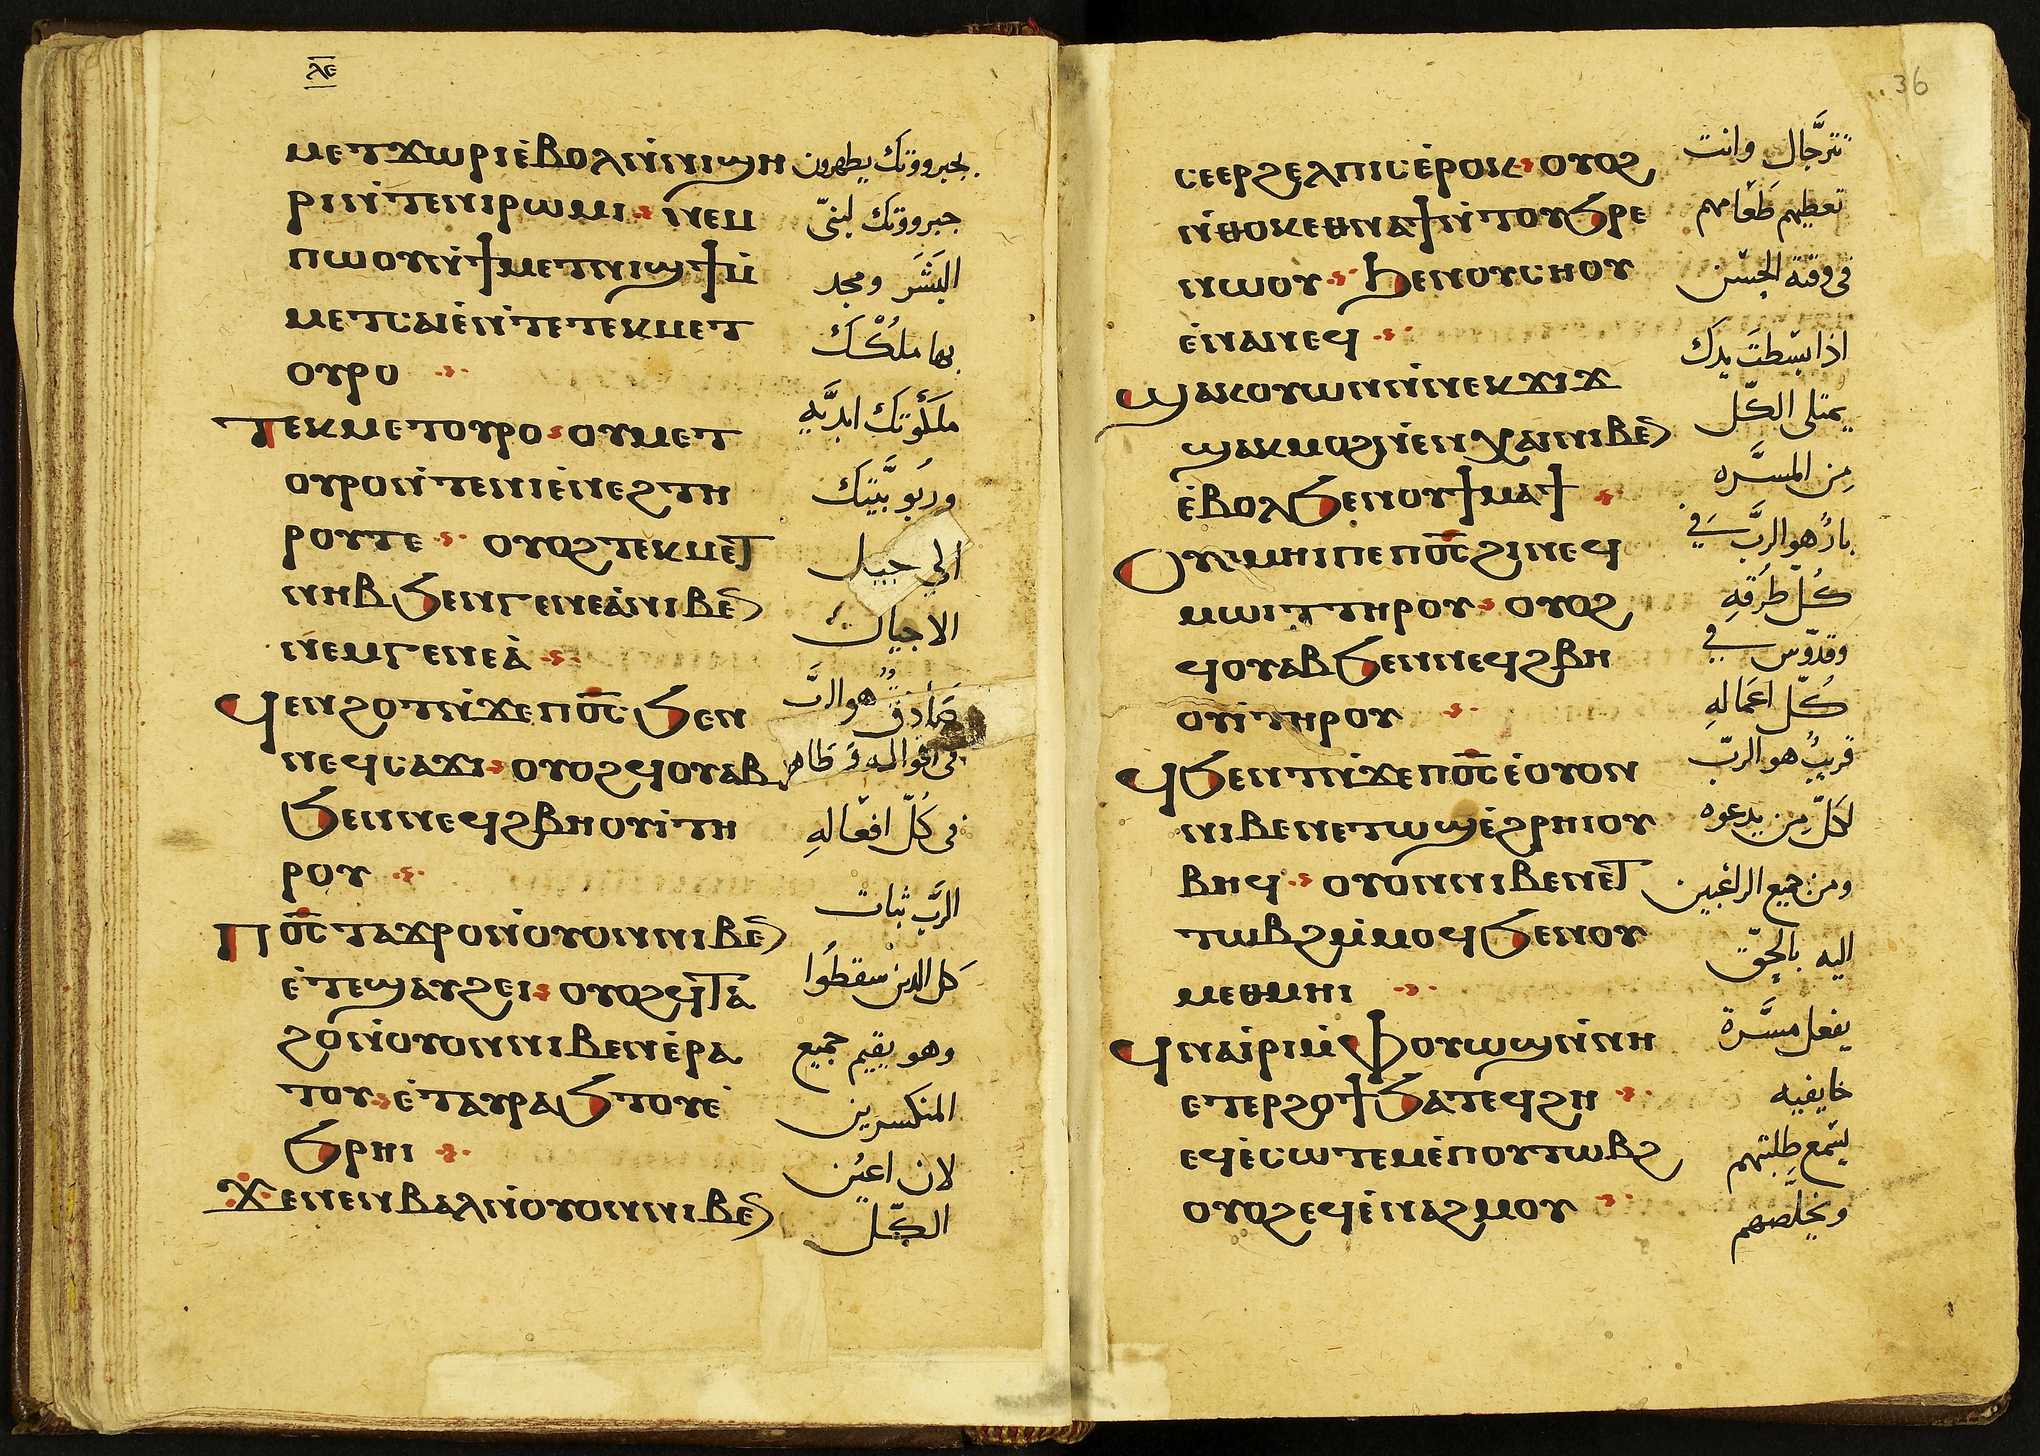 ⲗⲉ
ⲙⲉⲧϫⲱⲣⲓⲉ̀ⲃⲟⲗⲛ̀ⲛⲓϣⲏ
ⲣⲓⲛ̀ⲧⲉⲛⲓⲣⲱⲙⲓ ⲛⲉⲙ
ⲡⲱⲟⲩⲛ̀ϯⲙⲉⲧⲛⲓϣϯⲙ̀
ⲙⲉⲧⲥⲁⲓⲉ̀ⲛ̀ⲧⲉⲧⲉⲕⲙⲉⲧ
ⲟⲩⲣⲟ
Ⲧⲉⲕⲙⲉⲧⲟⲩⲣⲟ ⲟⲩⲙⲉⲧ
ⲟⲩⲣⲟⲛ̀ⲧⲉⲛⲓⲉ̀ⲛⲉϩⲧⲏ
ⲣⲟⲩⲧⲉ ⲟⲩⲟϩⲧⲉⲕⲙⲉⲧ
ⲛⲏⲃϧⲉⲛⲅⲉⲛⲉⲁ̀ⲛⲓⲃⲉⲛ
ⲛⲉⲙⲅⲉⲛⲉⲁ̀
Ϥⲉⲛϩⲟⲧⲛ̀ϫⲉⲡⲟ̅ⲥ̅ϧⲉⲛ
ⲛⲉϥⲥⲁϫⲓ ⲟⲩⲟϩϥⲟⲩⲁⲃ
ϧⲉⲛⲛⲉϥϩⲃⲏⲟⲩⲓ̀ⲧⲏ
ⲣⲟⲩ
Ⲡⲟ̅ⲥ̅ⲧⲁϫⲣⲟⲛ̀ⲟⲩⲟⲛⲛⲓⲃⲉⲛ
ⲉ̀ⲧⲉϣⲁⲩϩⲉⲓ ⲟⲩⲟϩϥ̀ⲧⲁ
ϩⲟⲛ̀ⲟⲩⲟⲛⲛⲓⲃⲉⲛⲉ̀ⲣⲁ
ⲧⲟⲩ ⲉ̀ⲧⲁⲩⲣⲁϧⲧⲟⲩⲉ̀
ϧⲣⲏⲓ
Ϫⲉⲛⲉⲛⲃⲁⲗⲛ̀ⲟⲩⲟⲛⲛⲓⲃⲉⲛ
لجبرووتك يظهرون
جبرووتك لبنىّ
البَشَرَ ومجد
بها ملُكْك
ملَكُوتك ابديَّه
ورُبُو بيَّتَك
الي جيل
الاجيال
صَادقٌ هو الرَبَّ
فى اقواله وَطَاهر
فى كُلّ افعَالهِ
الرَبّ ثبات
كل الدين سقطُوا
وهو يقيم جميع
المنكسرين
لان اعيُن
الكّل
36
ⲥⲉⲉⲣϩⲉⲗⲡⲓⲥⲉ̀ⲣⲟⲕ ⲟⲩⲟϩ
ⲛ̀ⲑⲟⲕⲉⲑⲛⲁϯⲛ̀ⲧⲟⲩϧⲣⲉ
ⲛⲱⲟⲩ ϧⲉⲛⲟⲩⲥⲏⲟⲩ
ⲉ̀ⲛⲁⲛⲉϥ
Ϣⲁⲕⲟⲩⲱⲛⲛ̀ⲛⲉⲕϫⲓϫ
ϣⲁⲕⲙⲟϩⲛ̀ⲉⲛⲭⲁⲓⲛⲓⲃⲉⲛ
ⲉ̀ⲃⲟⲗϧⲉⲛⲟⲩϯⲙⲁϯ
Ⲟⲩⲑⲙⲏⲓⲡⲉⲡⲟ̅ⲥ̅ϩⲓⲛⲉϥ
ⲙⲱⲓⲧⲧⲏⲣⲟⲩ ⲟⲩⲟϩ
ϥⲟⲩⲁⲃϧⲉⲛⲛⲉϥϩⲃⲏ
ⲟⲩⲓ̀ⲧⲏⲣⲟⲩ
Ϥϧⲉⲛⲧⲛ̀ϫⲉⲡⲟ̅ⲥ̅ⲉ̀ⲟⲩⲟⲛ
ⲛⲓⲃⲉⲛⲉⲧⲱϣⲉ̀ϩⲣⲏⲓⲟⲩ
ⲃⲏϥ ⲟⲩⲟⲛⲛⲓⲃⲉⲛⲉⲧ
ⲧⲱⲃϩⲙ̀ⲙⲟϥϧⲉⲛⲟⲩ
ⲙⲉⲑⲙⲏⲓ
Ϥⲛⲁⲓ̀ⲣⲓⲙ̀ⲫⲟⲩⲱϣⲛ̀ⲛⲏ
ⲉⲧⲉⲣϩⲟϯϧⲁⲧⲉϥϩⲏ
ⲉϥⲉ̀ⲥⲱⲧⲉⲙⲉ̀ⲡⲟⲩⲧⲱⲃϩ
ⲟⲩⲟϩⲉϥⲉ̀ⲛⲁϩⲙⲟⲩ
تترجَّال وانت
تعطيهم طَعَامهم
فى وقتة الحسَن
اذا بسَطتَ يدك
يمتلى الكّل
مِن المسَّره
بارُ هو الرَبَّ فى
كُلّ طرُقهِ
وقدّوس فى
كُلّ اعَمالهِ
قريبُ هو الربّ
لكلّ مِن يدعوه
ومن جميع الراغبين
اليه بالحقّ
يفعل مسَّرة
خايفيه
يسَمع طِلبتهم
ويخلّصهم